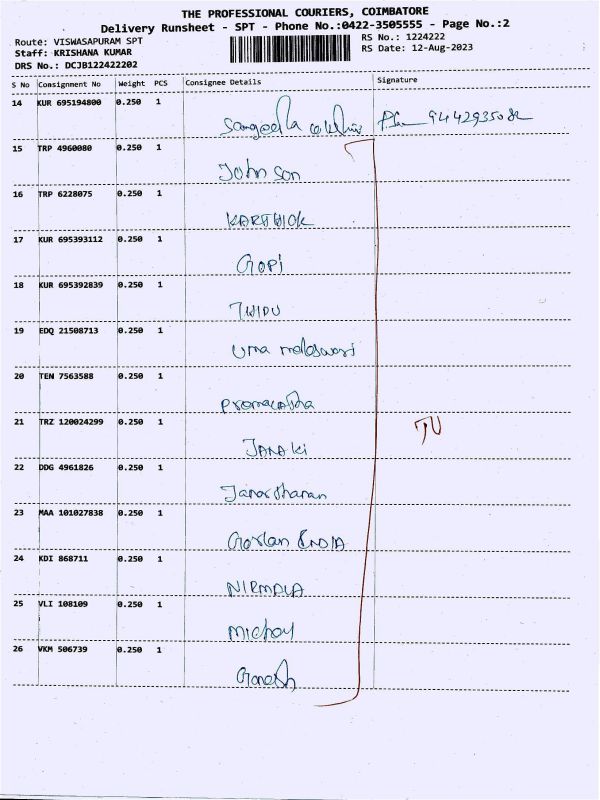 THE PROFESSIONAL COURIERS, COIMBATORE
Delivery Runsheet - SPT - Phone No.:0422-3505555 - Page No.:2
Route: VISWASAPURAM SPT RS No.: 1224222
Staff: KRISHANA KUMAR RS Date: 12-Aug-2023
DRS No.: DCJB122422202
S No Consignment No Weight PCS Consignee Details Signature
14 KUR 695194800 0.250 1
Sangeetha 9442935082
15 TRP 4960080 0.250 1
John son
16 TRP 6228075 0.250 1
KARTHICK
17 KUR 695393112 0.250 1
Gopi
18 KUR 695392839 0.250 1
19 EDQ 21508713 0.250 1
Uma
20 TEN 7563588 0.250 1
21 TRZ 120024299 0.250 1
JANAKi
22 DDG 4961826 0.250 1
Janardhanan
23 MAA 101027838 0.250 1
INDIA
24 KDI 868711 0.250 1
NIRMALA
25 VLI 108109 0.250 1
26 VKM 506739 0.250 1
Ganesh